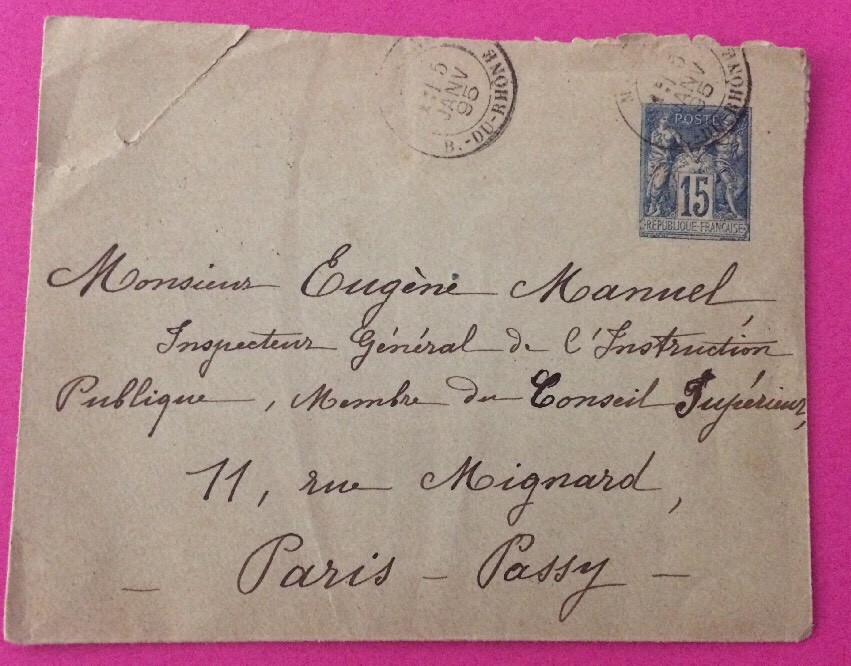 5
JANV
95
B.-DU-RHONE
5
JANV
95
RHONE
POSTE
15
RÉPUBLIQUE-FRANÇAISE
Monsieur Eugène Manuel,
Inspecteur Général de l'Instruction
Publique, Membre du Conseil Supérieur,
11, rue Mignard,
Paris - Passy -